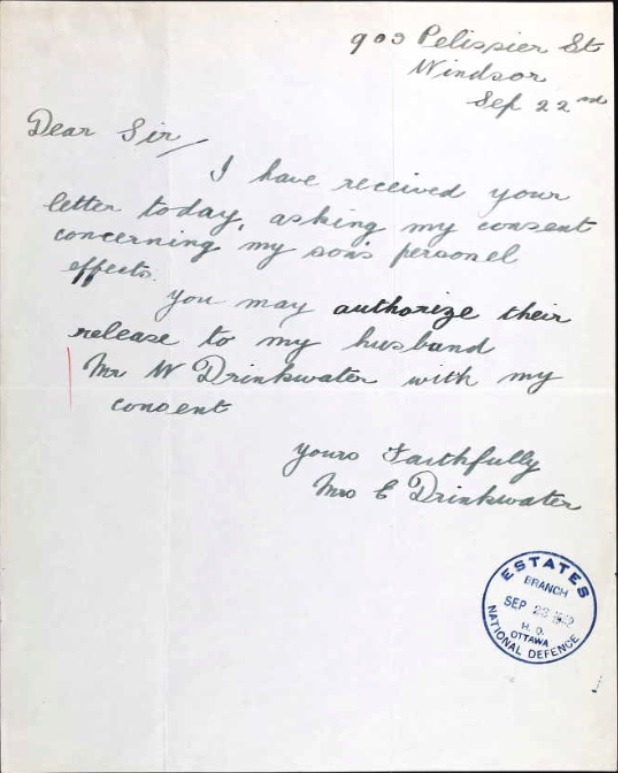 903 Pelissier St
Windsor
Sep 22nd
Dear Sir/
I have received your
letter today, asking my consent
concerning my son's personel
effects.
You may authorize their
release to my husband
Mr W Drinkwater with my
consent
Yours Faithfully
Mrs E Drinkwater
ESTATES
BRANCH
SEP 23 1942
H. Q.
OTTAWA
NATIONAL DEFENCE